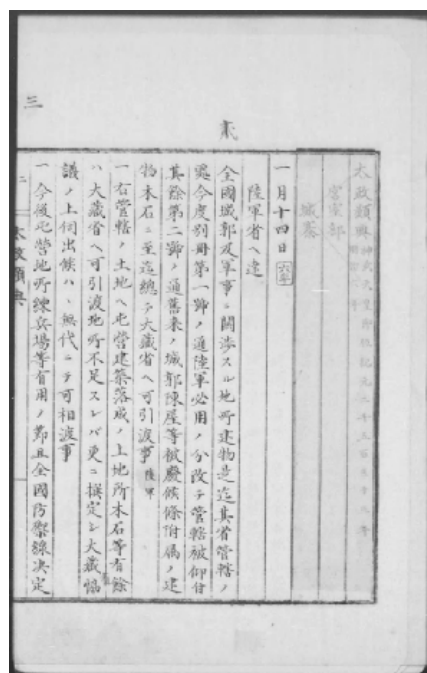 三
太政類典
宮室部
城塞
一月十四日 六年
陸軍省ヘ達
全國城郭及軍事ニ關渉スル地所建物是迄其省管轄ノ
處今度別冊第一號ノ通陸軍必用ノ分改テ管轄被仰付
其餘第二號ノ通舊来ノ城郭陣屋等被廢候條附屬ノ建
物木石ニ至迄總テ大藏省ヘ可引渡事 陸軍
一右管轄ノ土地ヘ屯營建築落成ノ上地所木石等有餘
ハ大藏省ヘ可引渡地所不足スレバ更ニ撰定シ大藏協
議ノ上伺出候ハヽ無代ニテ可相渡事
一今後屯營地所練兵場等有用ノ節且全國防禦線決定
太政類典